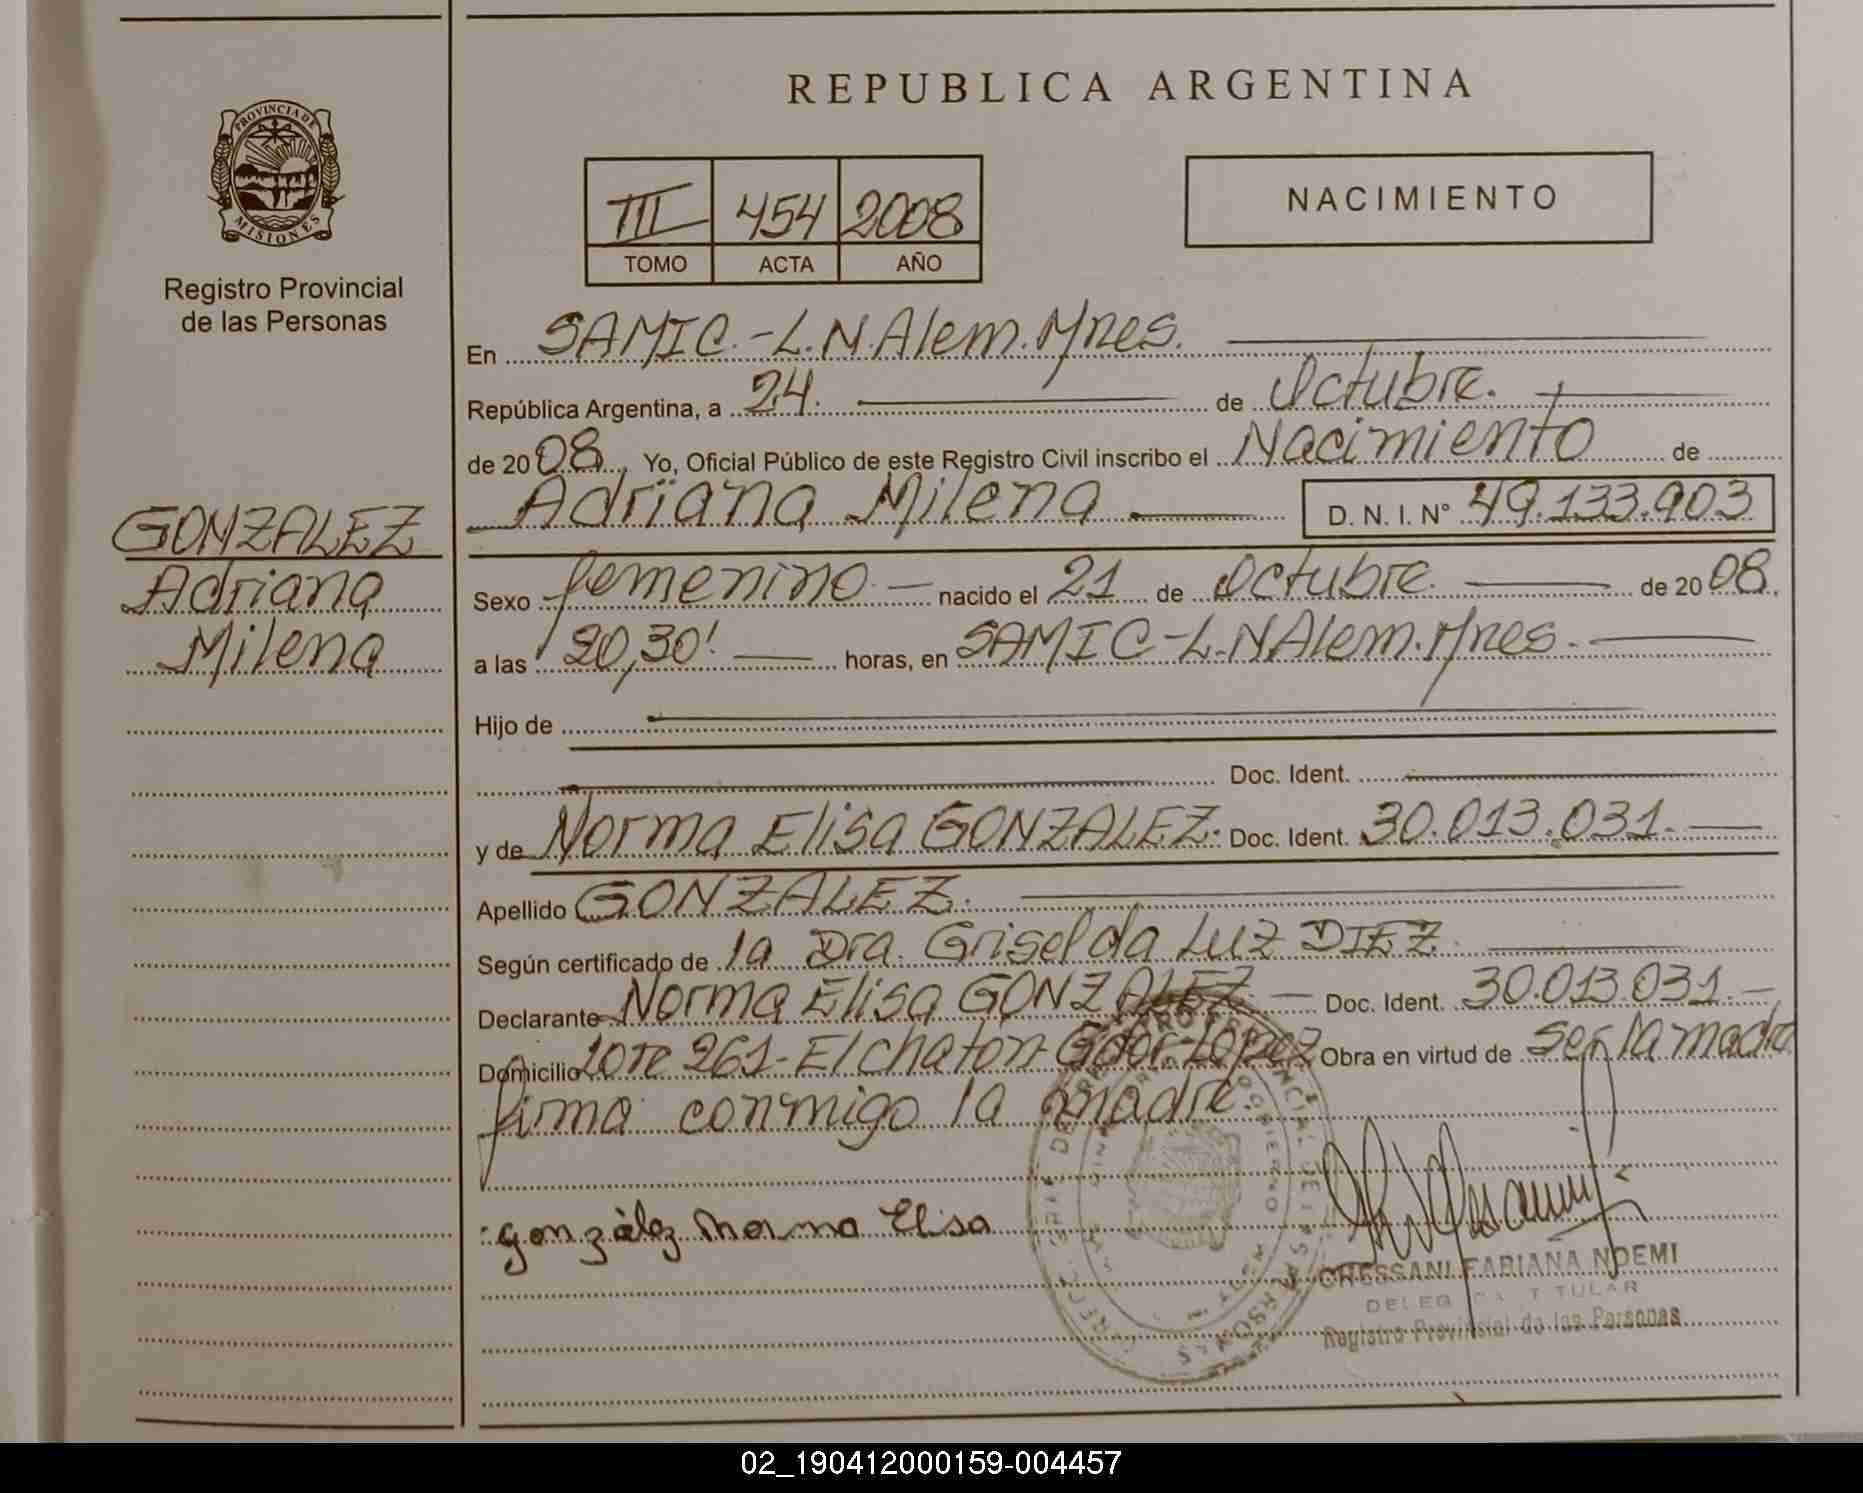 REPUBLICA ARGENTINA
PROVINCIA DE MISIONES
Registro Provincial
de las Personas
III 454 2008
TOMO ACTA AÑO
NACIMIENTO
En SAMIC.-L.N.Alem.Mnes.
República Argentina, a 24. de Octubre.
de 2008, Yo, Oficial Público de este Registro Civil inscribo el Nacimiento de
Adriana Milena D. N. I. N° 49.133.903
GONZALEZ
Adriana
Milena
Sexo femenino nacido el 21 de Octubre. de 2008.
a las 20,30' horas, en SAMIC-L.NAlem.Mnes.
Hijo de
Doc. Ident.
y de Norma Elisa GONZALEZ. Doc. Ident. 30.013.031.
Apellido GONZALEZ.
Según certificado de la Dra. Griselda LUZ DIEZ.
Declarante Norma Elisa GONZALEZ. Doc. Ident. 30.013.031.
Domicilio Lote 261-El chatón-Gdor-López Obra en virtud de ser la madre
firma conmigo la madre.
gonzález norma Elisa
FABIANA NOEMI
TITULAR
Registro Provincial de las Personas
02_190412000159-004457